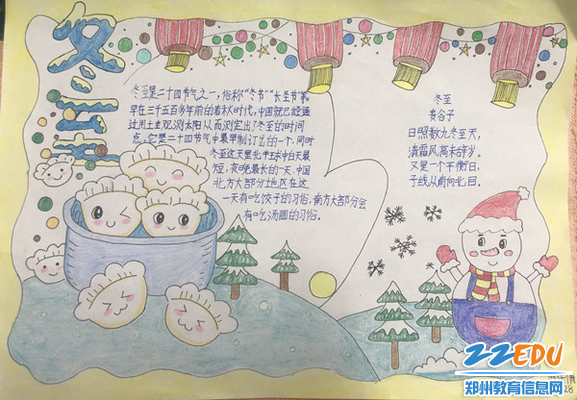 冬至
冬至是二十四节气之一，俗称“冬节”长至节”等。
早在三千五百多年前的春秋时代，中国就已经通
过用土圭观测太阳从而测定出了冬至的时间
点，它是二十四节气中最早制订出的一个，同时
冬至这天是北半球中白天最
短，夜晚最长的一天，中国
北方大部分地区在这
一天有吃饺子的习俗，南方大部分会
有吃汤圆的习俗。
冬至
黄谷子
日照数九冬至天，
清霜风高未辞岁。
又是一个平衡日，
子线从南向北回。
28
ZZEDU
郑州教育信息网